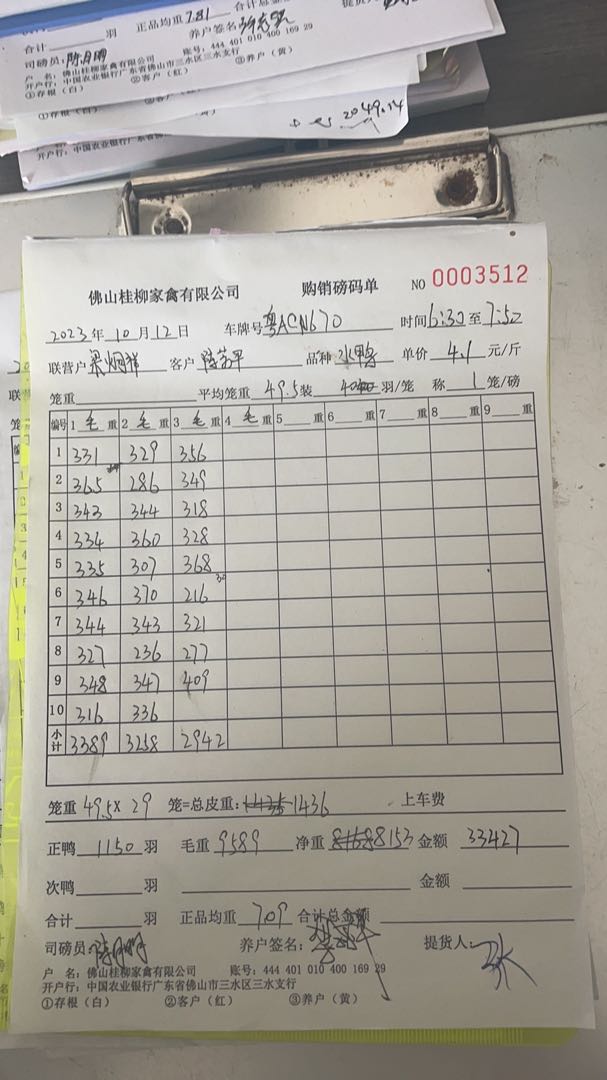 合计 羽 正品均重 7.81 合计总金
司磅员: 陈月明 养户签名
户 名: 佛山桂柳家禽有限公司 账号: 444 401 010 400 169 29
开户行: 中国农业银行广东省佛山市三水区三水支行
①存根(白) ②客户(红) ③养户(黄)
2049.14
佛山桂柳家禽有限公司 购销磅码单 NO 0003512
2023年10月12日 车牌号 粤ACN670 时间6:30至7:52
联营户 梁炯祥 客户 品种 水鸭 单价 4.1 元/斤
笼重 平均笼重 49.5 装 40 羽/笼 称 1 笼/磅
编号 1 毛 重 2 毛 重 3 毛 重 4 毛 重 5 重 6 重 7 重 8 重 9 重
1 331 329 356
2 365 286 349
3 343 344 318
4 334 360 328
5 335 307 368
6 346 370 216
7 344 343 321
8 327 236 277
9 348 347 409
10 316 336
小计 3389 3258 2942
笼重 49.5×29 笼=总皮重: 1436 上车费
正鸭 1150 羽 毛重 9589 净重 8153 金额 33427
次鸭 羽 金额
合计 羽 正品均重 7.09 合计总金额
司磅员: 陈月明 养户签名: 提货人: 张
户 名: 佛山桂柳家禽有限公司 账号: 444 401 010 400 169 29
开户行: 中国农业银行广东省佛山市三水区三水支行
①存根(白) ②客户(红) ③养户(黄)